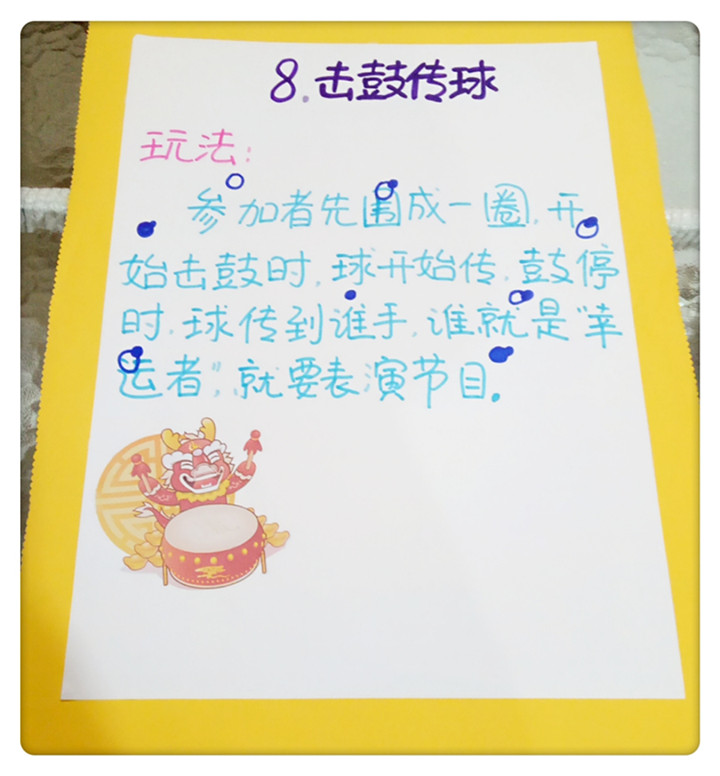 8.击鼓传球
玩法:
参加者先围成一圈,开
始击鼓时,球开始传,鼓停
时,球传到谁手,谁就是“幸
运者”,就要表演节目。